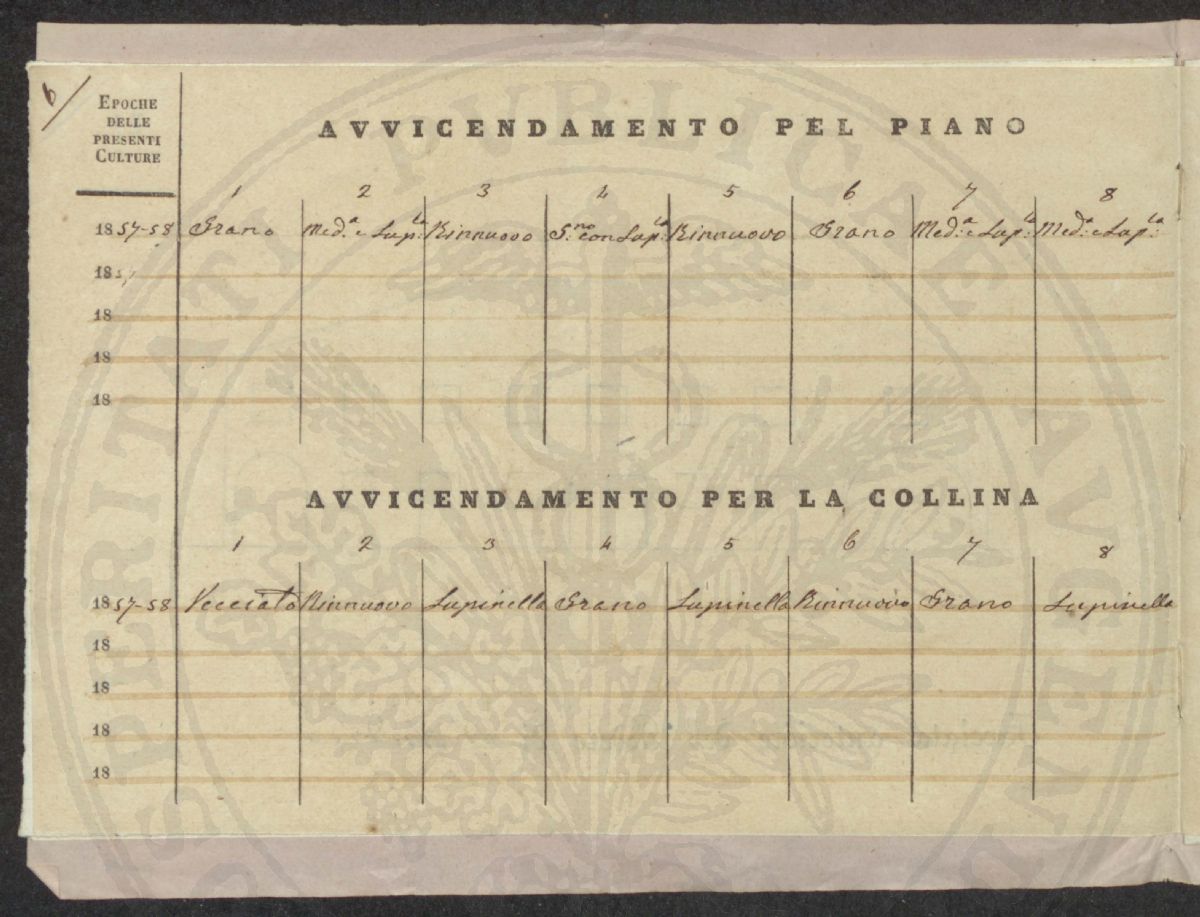 6/
EPOCHE
DELLE
PRESENTI
CULTURE
AVVICENDAMENTO PEL PIANO
1 2 3 4 5 6 7 8
1857-58 Grano Med.a e Lup.la Rinnuovo G.no con Lup.la Rinnuovo Grano Med.a e Lup.la Med.a e Lup.la
185
18
18
18
AVVICENDAMENTO PER LA COLLINA
1 2 3 4 5 6 7 8
1857-58 Vecciato Rinnuovo Lupinella Grano Lupinella Rinnuovo Grano Lupinella
18
18
18
18
PROSPERITATI PVBLICAE AVGENDAE